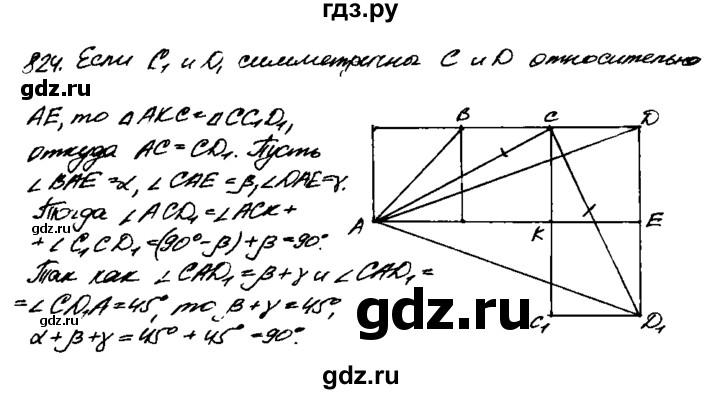 гдз.ру
824. Если C₁ и D₁ симметричны C и D относительно
gdz.ru
AE, то △AKC=△CC₁D₁,
откуда AC=CD₁. Пусть
∠BAE=α, ∠CAE=β, ∠DAE=γ.
Тогда ∠ACD₁=∠ACK+
+∠C₁CD₁=(90°-β)+β=90°.
Так как ∠CAD₁=β+γ и ∠CAD₁=
=∠CD₁A=45°, то β+γ=45°,
gdz.ru
α+β+γ=45°+45°=90°.
B C D
A K E
C₁ D₁
gdz.ru
gdz.ru